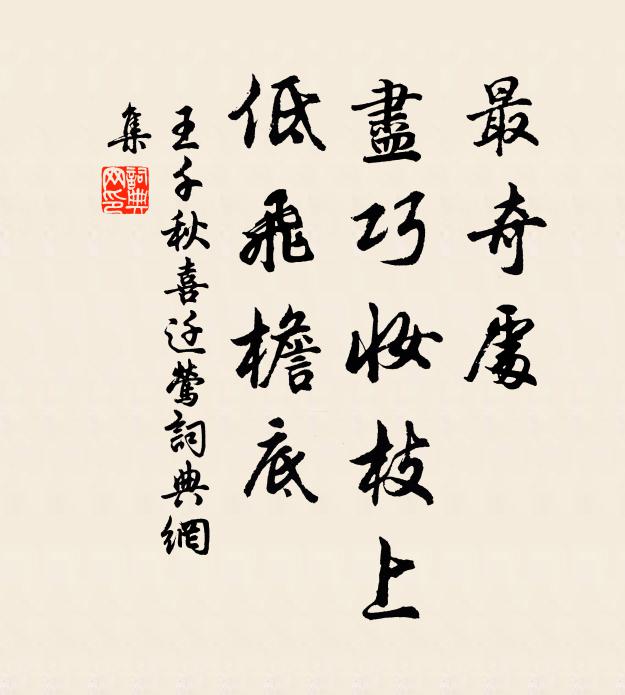 最奇處
盡巧妝枝上
低飛檐底
王千秋喜迁鶯詞典網
集
詞典
网印